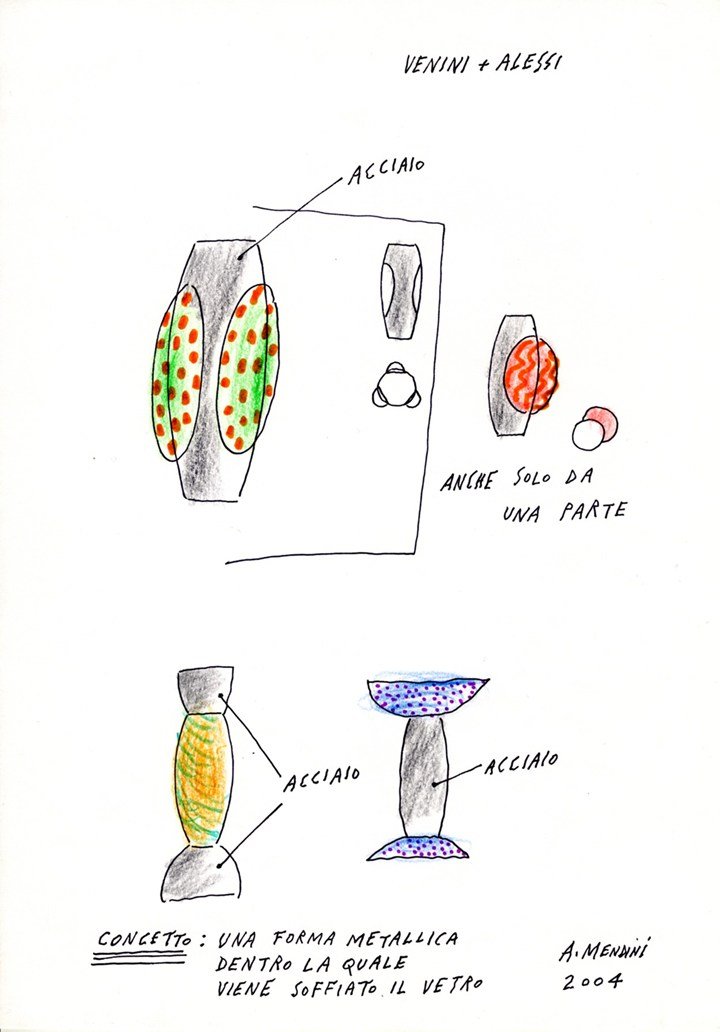 VENINI + ALESSI
ACCIAIO
ANCHE SOLO DA
UNA PARTE
ACCIAIO
ACCIAIO
CONCETTO: UNA FORMA METALLICA
DENTRO LA QUALE
VIENE SOFFIATO IL VETRO
A. MENDINI
2004